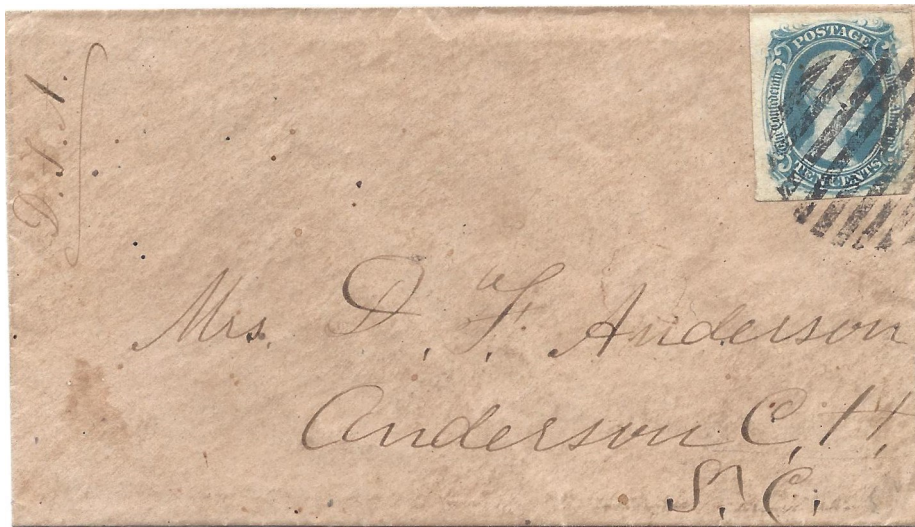 D. F. A.
POSTAGE
TEN CENTS
Mrs. D. F. Anderson
Anderson C. H.
S. C.